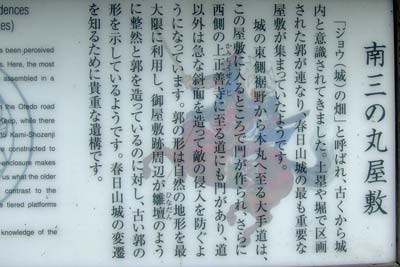 南三の丸屋敷
「ジョウ（城）の畑」と呼ばれ、古くから城
内と意識されてきました。土塁や堀で区画
された郭が連なり、春日山城の最も重要な
屋敷が集まっていたようです。
城の東側裾野から本丸へ至る大手道は、
この屋敷に入るところで門が作られ、さらに
西側の上正善寺に至る道にも門があり、道
以外は急な斜面を造って敵の侵入を防ぐよ
うになっています。郭の形は自然の地形を最
大限に利用し、御屋敷跡周辺が雛壇のよう
に整然と郭を造っているのに対し、古い郭の
形を示しているようです。春日山城の変遷
を知るために貴重な遺構です。
dences
es)
as been perceived
s. Here, the most
assembled in a
n the Otedo road
Keep, while there
to Kami-Shozenji
e constructed to
enclosure makes
us what the older
contrast to the
e tiered platforms
knowledge of the